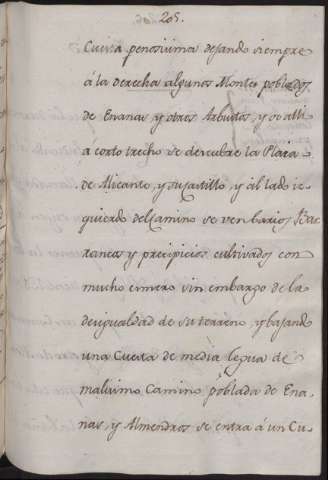 205.
Cuesta penosisima dejando siempre
á la derecha algunos Montes poblados
de Enanas y otros Arbustos, y de alli
a corto trecho se descubre la Plaza
de Alicante, y su castillo, y al lado iz
quierdo del Camino se ven barios Bar
rancos y precipicios cultivados con
mucho esmero sin embargo de la
desigualdad de su terreno, y bajando
una Cuesta de media legua de
malisimo Camino poblada de Ena
nas, y Almendros se entra á un Cu